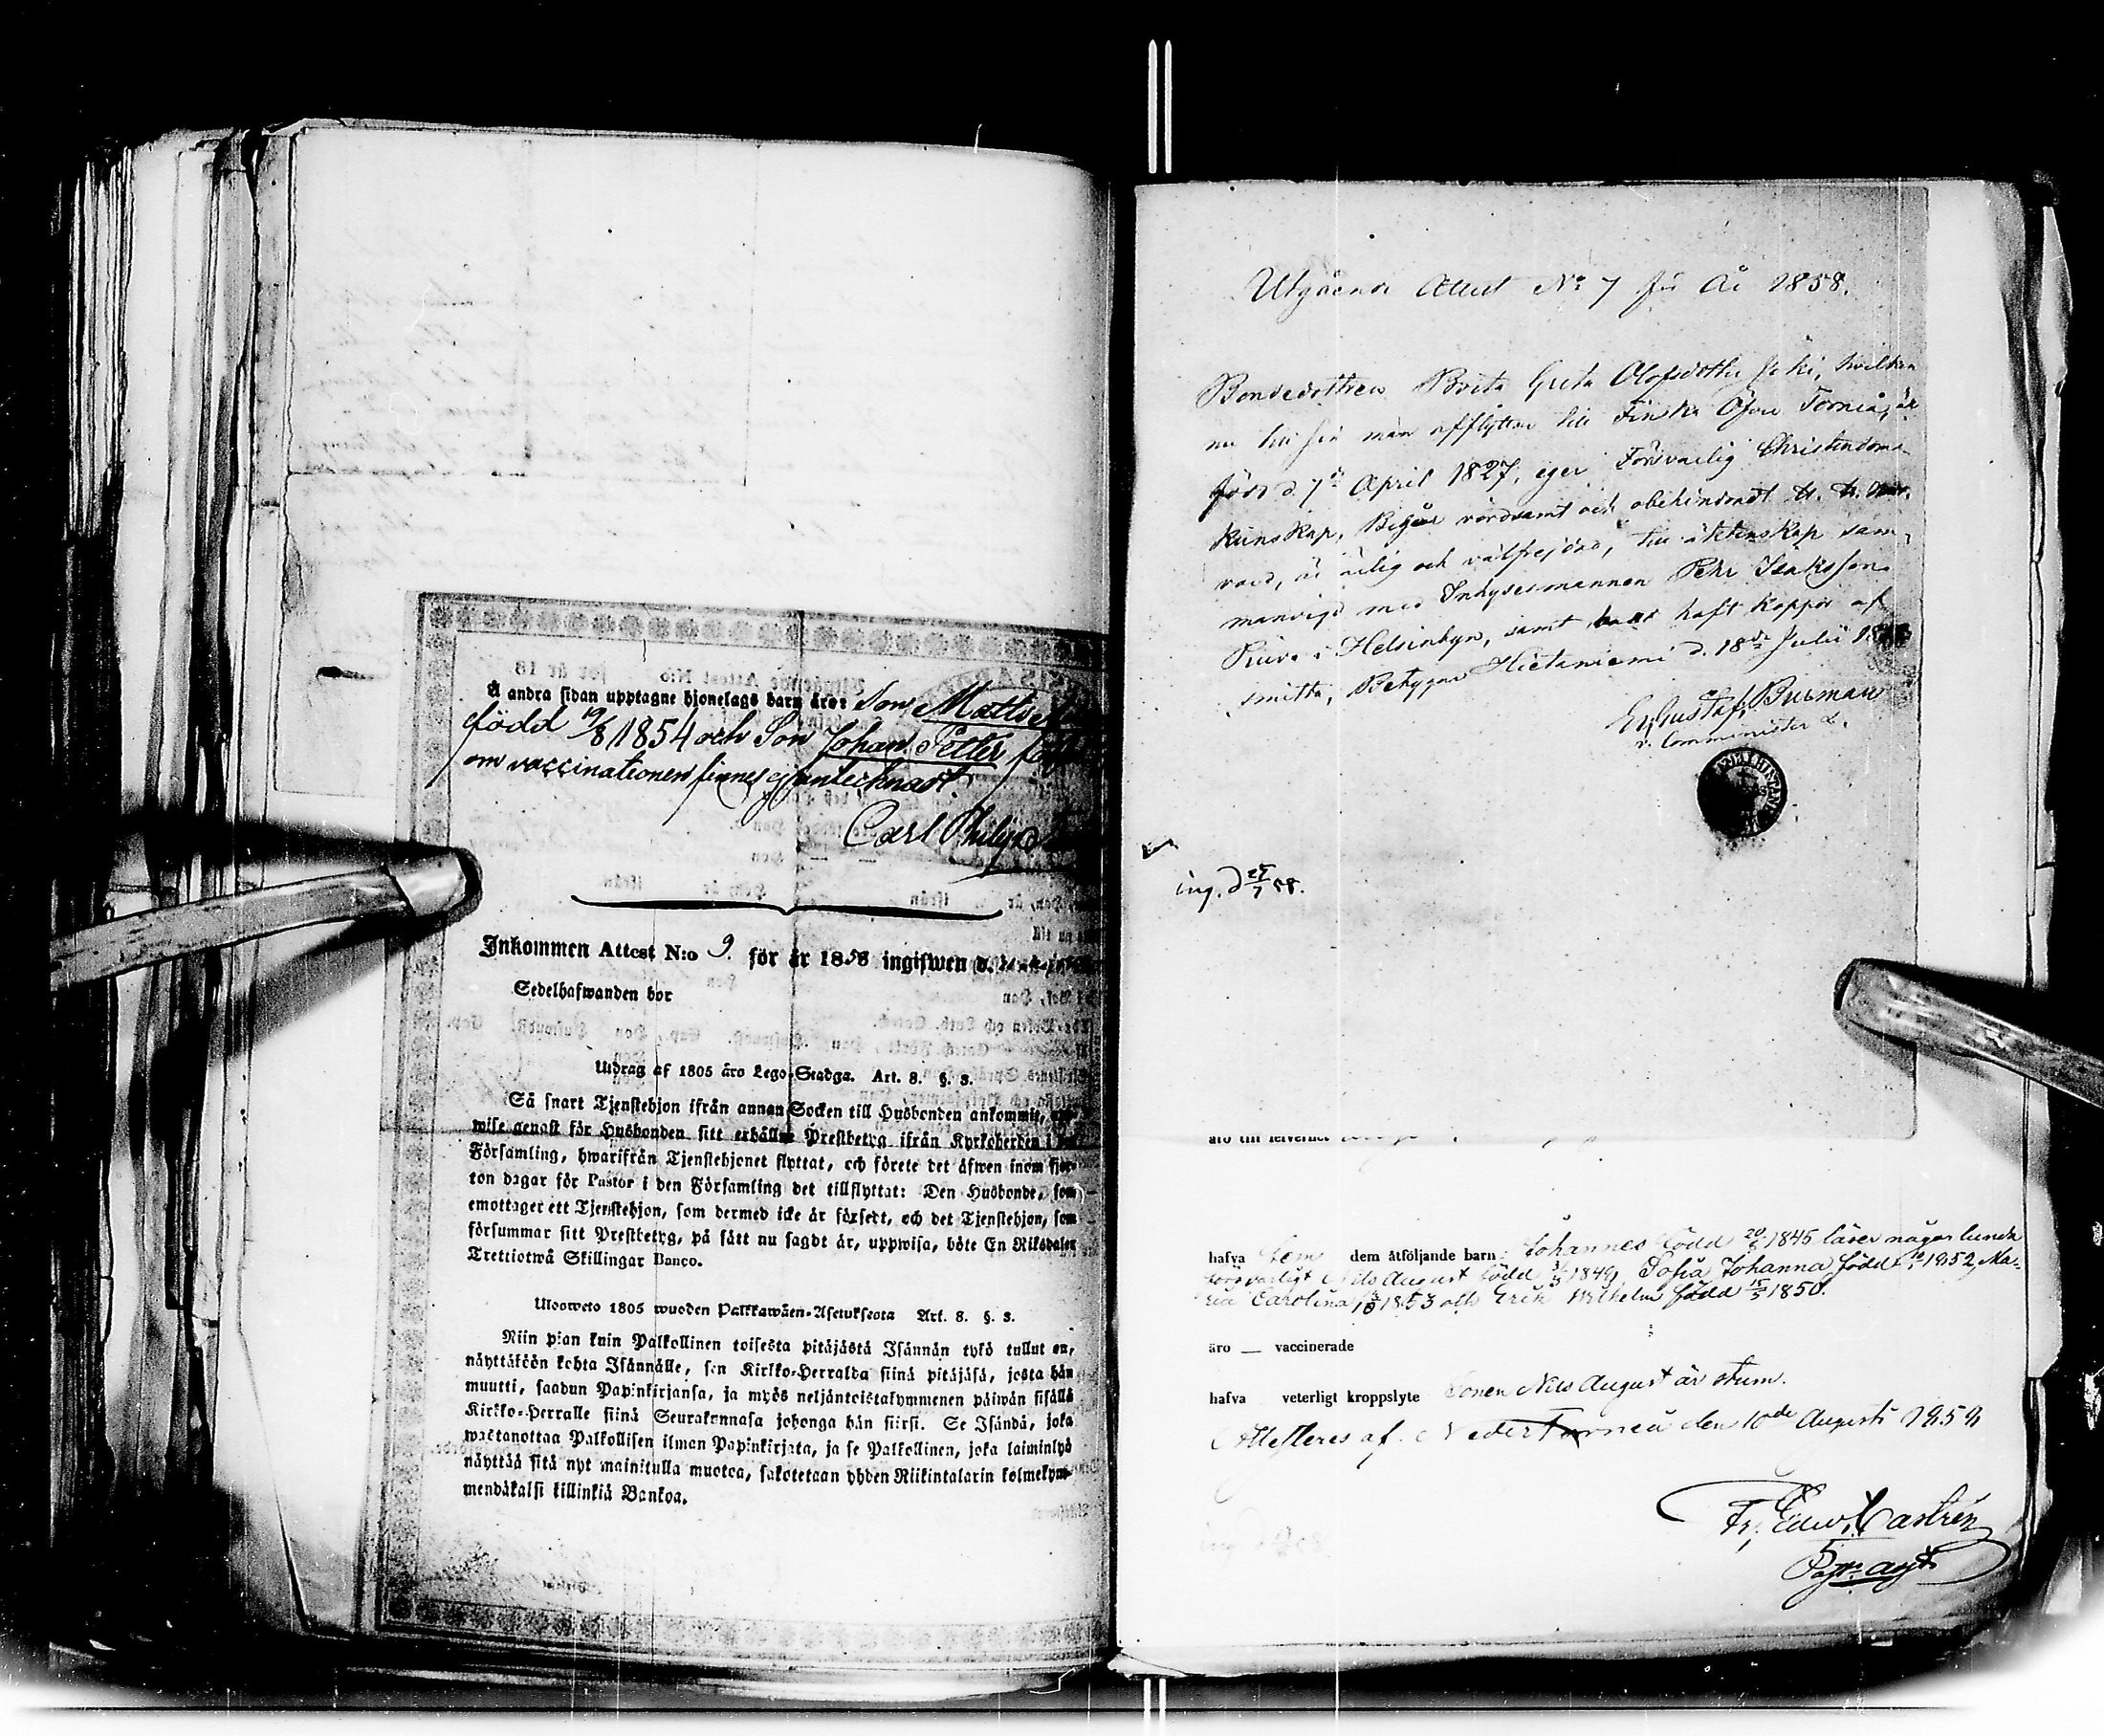 Å andra sidan upptagne hjonelags barn äro: Son Matts
född 19/8 1854 och Son Johan Petter född
om vaccinationen finnes ej antecknadt.
Carl Philip
Inkommen Attest N:o 9. för år 1858 ingifwen d.
Sedelhafwanden bor
Utdrag af 1805 åro Lego-Stadga. Art. 8. §. 3.
Så snart Tjenstehjon ifrån annan Socken till Husbonden ankommit,
wise genast för Husbonden sitt erhållne Prestbetyg ifrån Kyrkoherden i
Församling, hwarifrån Tjenstehjonet flyttat, och förete det äfwen inom fjor-
ton dagar för Pastor i den Församling det tillflyttat: Den Husbonde, som
emottager ett Tjenstehjon, som dermed icke är försedt, och det Tjenstehjon, som
försummar sitt Prestbetyg, på sätt nu sagdt är, uppwisa, böte En Riksdaler
Trettiotwå Skillingar Banco.
Ulosweto 1805 wuoden Palkkawäen-Asetuksesta Art. 8. §. 3.
Niin pian kuin Palkollinen toisesta pitäjästä Isännän tykö tullut on,
näyttäköön kohta Isännälle, sen Kirkko-Herralda siinä pitäjäsä, josta hän
muutti, saadun Papinkirjansa, ja myös neljäntoistakymmenen päiwän sisällä
Kirkko-Herralle siinä Seurakunnasa johonga hän siirsi. Se Isändä, joka
wastanottaa Palkollisen ilman Papinkirjata, ja se Palkollinen, joka laiminlyö
näyttää sitä nyt mainitulla muotoa, sakotetaan yhden Riikintalarin kolmekym-
mendäkaksi killinkiä Bankoa.
Utgående Attest No 7 för År 1858.
Bondedottren Brita Greta Olofsdotter hvilken
nu till sin man afflyttar till Finska Öfver Torneå, är
född d. 7de April 1827, eger Försvarlig Christendoms
kunskap, Begår vördsamt och obehindradt H. H. Natt-
vard, är ärlig och välfrejdad, till äktenskap sam-
manvigd med Inhysesmannen Pehr Isaksson
i Helsinbyn, samt haft koppor af
smitta, Betygar Hietaniemi d. 18de Julii
Er. Gustaf Burman
v. Comminister
ing. d 25/7 58.
äro till lefvernet
hafva fem dem åtföljande barn: Johannes född 1845 läser någorlunda
försvarligt Nils August född 1849, Sofia Johanna född 1852, Ma-
ria Carolina 1853 och Erik Wilhelm född 1850.
äro — vaccinerade
hafva veterligt kroppslyte Sonen Nils August är stum.
Attesteres af Neder Torneå den 10de Augusti 1859
Fr. Edw. Castrén